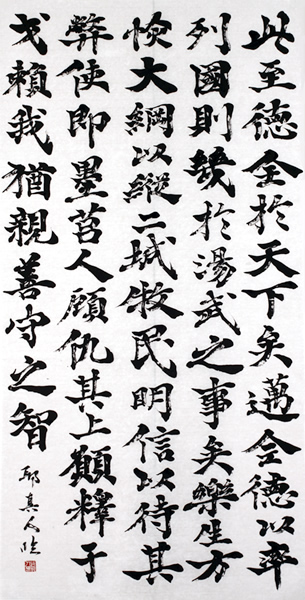 此至德全於天下矣邁全德以率
列國則幾於湯武之事矣樂生方
恢大綱以縱二城牧民明信以待其
弊使即墨莒人顧仇其上願釋干
戈賴我猶親善守之智
真人臨